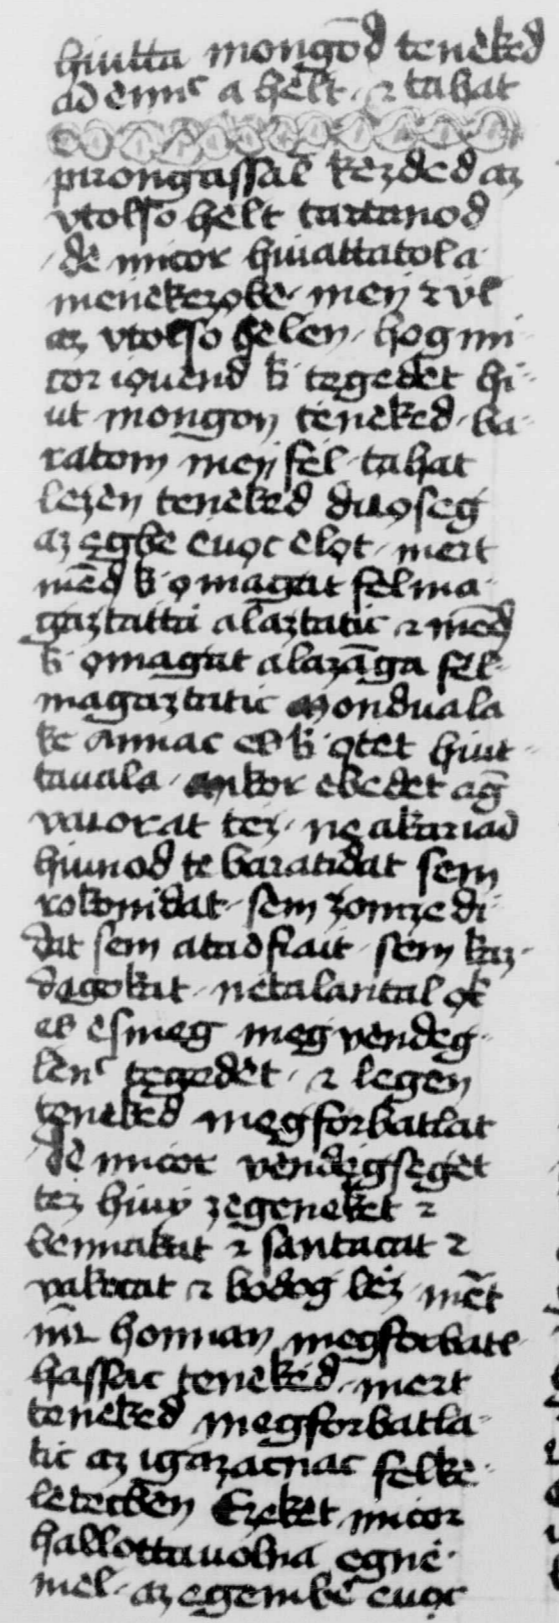 hiutta mongōd tenèkèd
ad ennc a hèlt · ⁊ tahat
pirongassal kezded az
vtolso hèlt tartanod
dè micor hiuattatol a
menèkezobè· mèń ⁊ vl
az vtolso hèlen· hog mi
cor iouènd ki tegedèt hi-
ut mongoń tenèkèd· ba-
ratom mèń fèl· tahat
lèzèn tenèkèd dičoseg
az egbè èuoc èlot· mert
mēd ki o magat felma
gaztatta alaztatic ⁊ mēd
ki omagat alazāga fèl-
magaztatic Monduala
ke Annac es ki otet hiut-
tauala· Mikor ebedèt ag̃
vačorat tez· nè akariad
hiunod te baratidat sem
rokonidat· sem zomzedi-
dat sem atadfiait· sem kaz-
dagokat· netalantal ok
es esmeg megvendeg-
lènc tegedèt· ⁊ legèn
tenèkèd megforbatlat
Dè micor vendegseget
tez hiuy zegenèkèt ⁊
bennakat ⁊ santacat ⁊
vakocat ⁊ bodog lèz mēt
nīc honnan megforbatl-
hassac tenèkèd· mert
tenèkèd megforbatla-
tic az igazacnac felkè-
letecben Ezekèt micor
hallottauolna egnè-
mel· az egembē èuoc